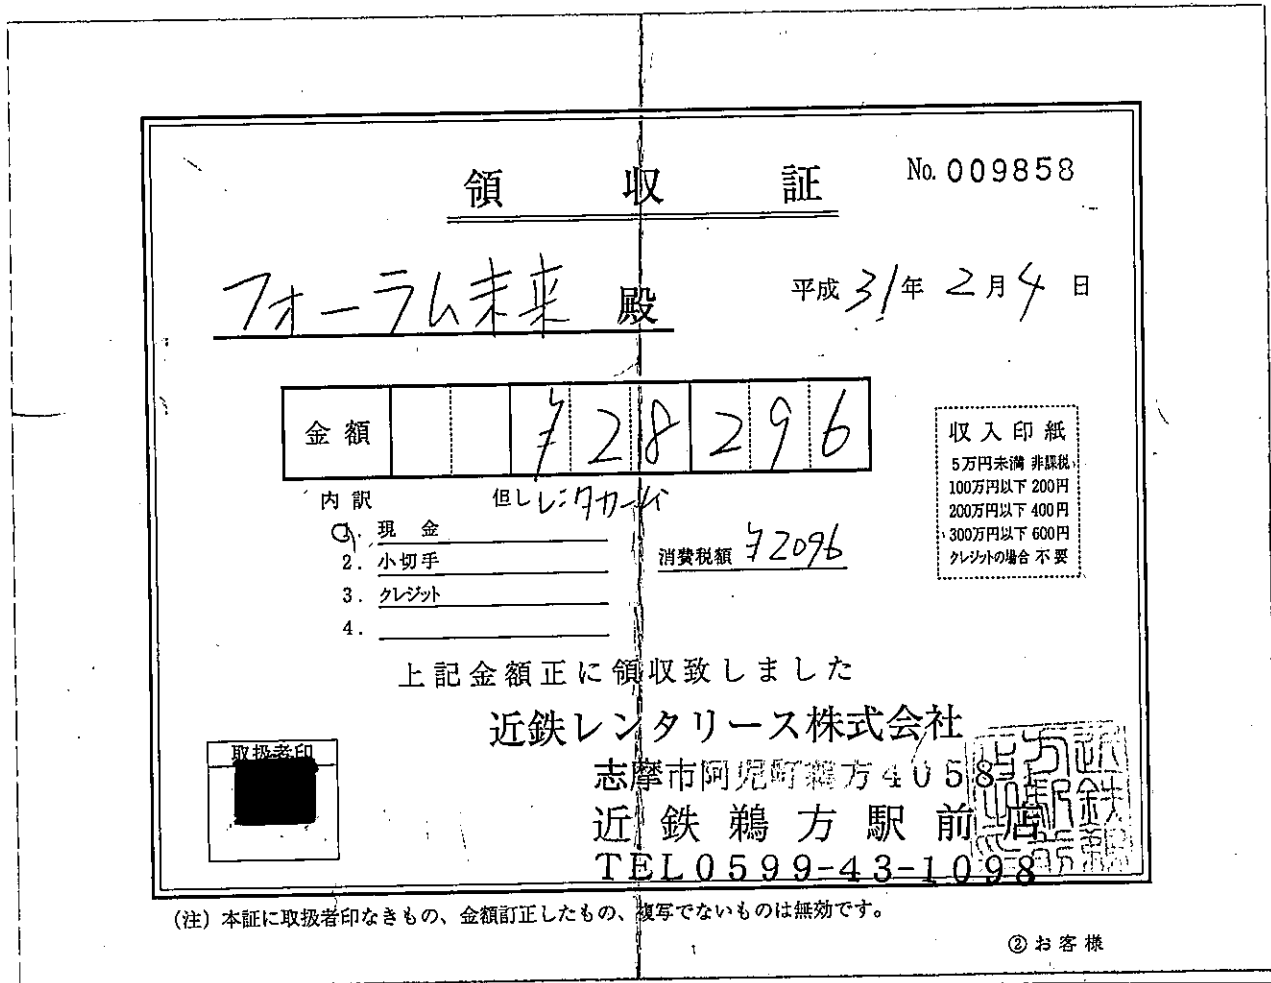 領収証
No. 009858
フォーラム未来 殿
平成 31年 2月 4日
金額 ¥28296
内訳
但し レンタカー代
1. 現金
2. 小切手
3. クレジット
4.
消費税額 ¥2096
収入印紙
5万円未満 非課税
100万円以下 200円
200万円以下 400円
300万円以下 600円
クレジットの場合 不要
上記金額正に領収致しました
近鉄レンタリース株式会社
志摩市阿児町鵜方4058
近鉄鵜方駅前店
TEL0599-43-1098
取扱者印
(注) 本証に取扱者印なきもの、金額訂正したもの、複写でないものは無効です。
②お客様